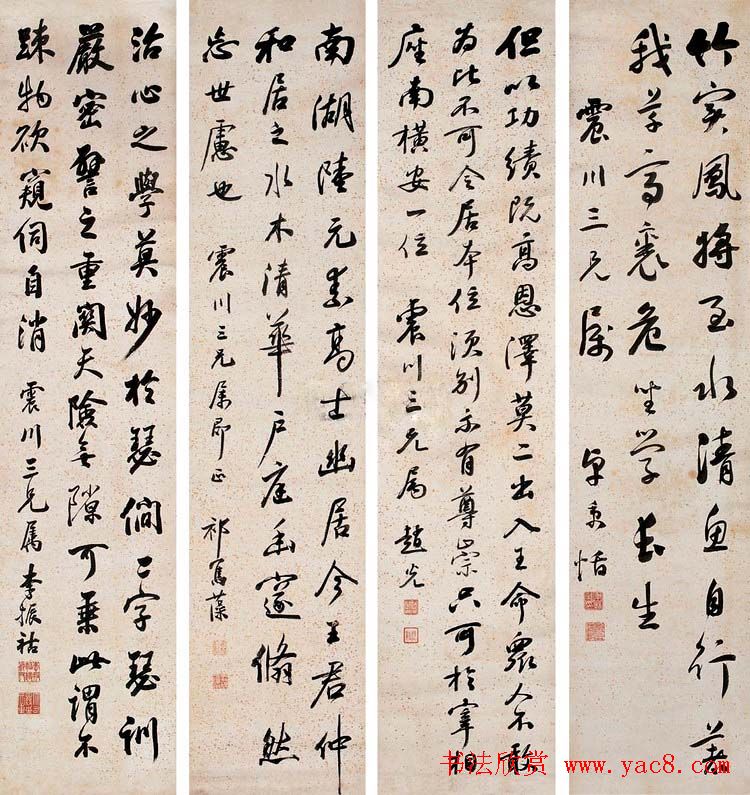 竹實鳳將至水清魚自行著
我茅亭裏危坐學長生
震川三兄屬 卓秉恬
但以功績既高恩澤莫二出入王命眾人不敢
為比不可令居本位須別示有尊崇只可於宰相
座南橫安一位 震川三兄屬 趙光
南湖陸元素高士幽居今王君仲
和居之水木清華戶庭幽邃翛然
忘世慮也 震川三兄屬即正 祁寯藻
治心之學莫妙於瑟僴二字瑟訓
嚴密譬之重關天險無隙可乘此謂不
疎物欲窺伺自消 震川三兄屬 李振祜
书法欣赏 www.yac8.com